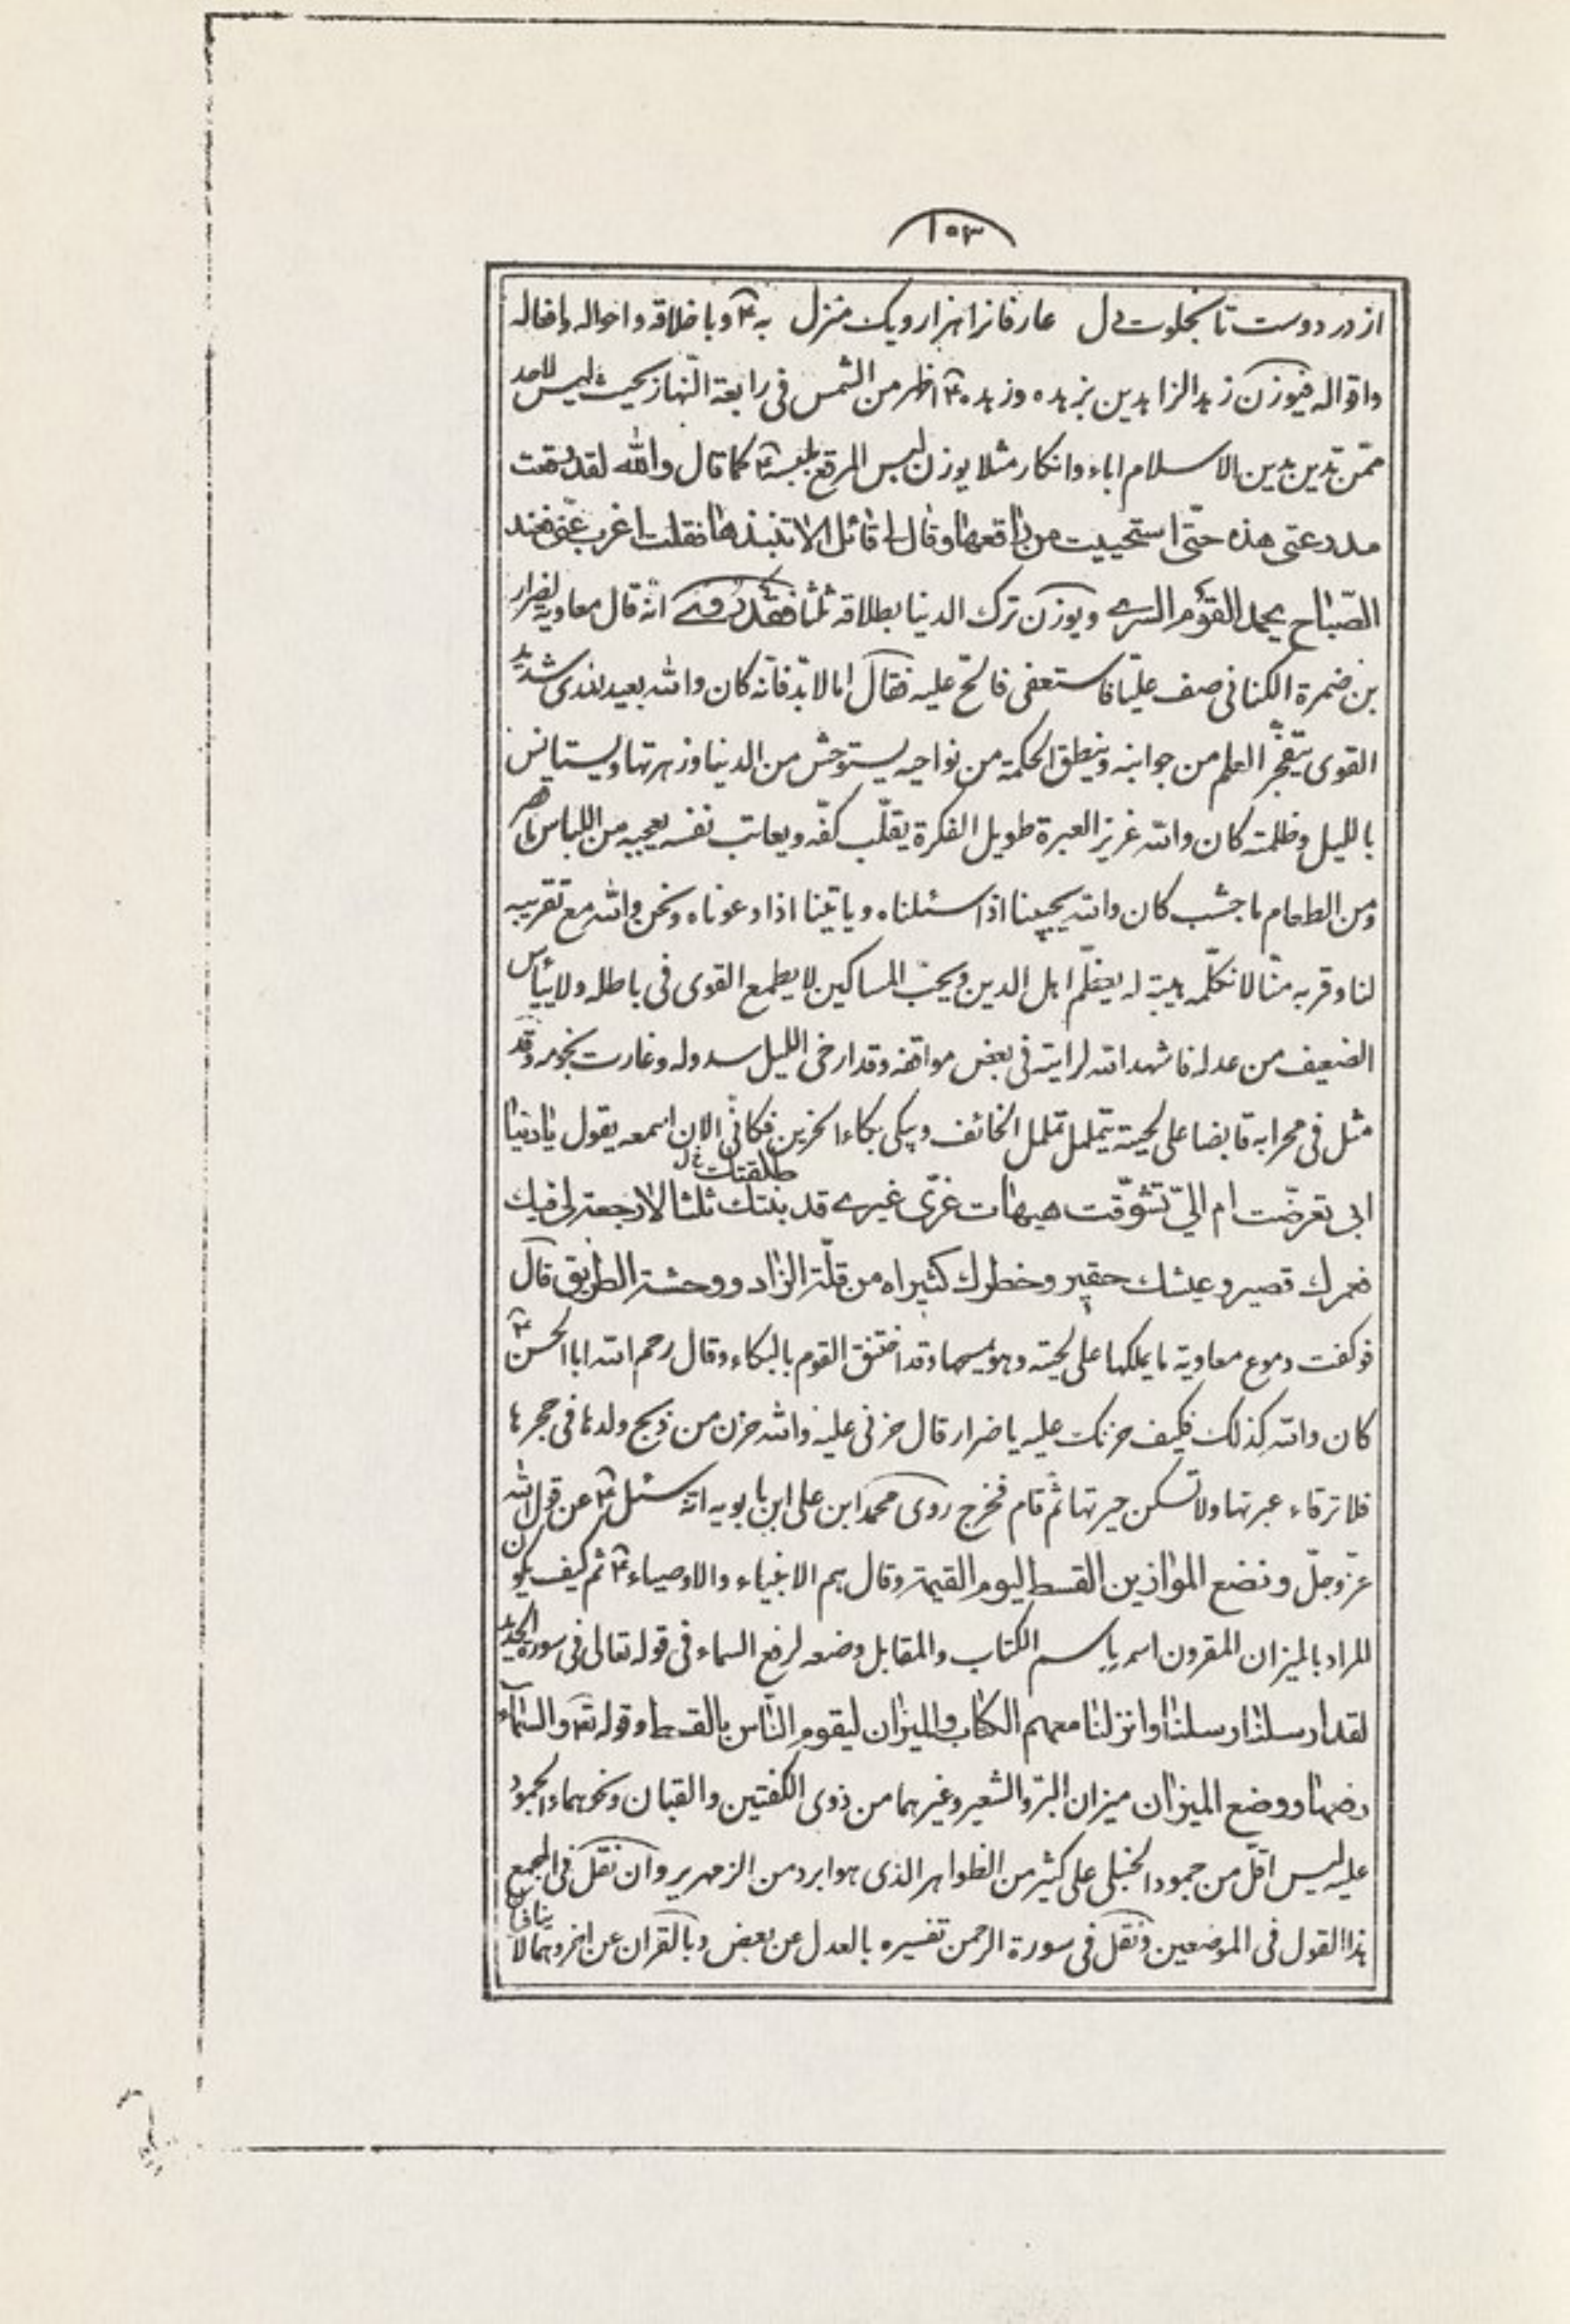 ١٥٣
از در دوست تا بخلوت دل عارفانرا هزار و یک منزل به ع و باخلاقه و احواله و افعاله
واقواله فیوزن زهد الزاهدین بزهده وزهده ع اظهر من الشمس فی رابعة النهار بحیث لیس لاحد
ممّن تدین بدین الاسلام اباء وانکار مثلا یوزن لبس المرقع بلبسه ع کما قال والله لقد رقعت
مدرعتی هذه حتّی استحییت من راقعها وقال لی قائل الا تنبذها فقلت اغرب عنّی فعند
الصّباح یحمد القوم السری ویوزن ترک الدنیا بطلاقه ثلثا فقد روی انّه قال معاویه لضرار
بن ضمرة الکنانی صف علیّا فاستعفی فالحّ علیه فقال اما لا بدّ فانّه کان والله بعید المدی شدید
القوی یتفجّر العلم من جوانبه وینطق الحکمة من نواحیه یستوحش من الدنیا وزهرتها ویستانس
باللیل وظلمته کان والله غزیر العبرة طویل الفکرة یقلّب کفّه ویعاتب نفسه یعجبه من اللباس ما قصر
ومن الطعام ما جشب کان والله یجیبنا اذا سئلناه ویاتینا اذا دعوناه ونحن والله مع تقریبه
لنا وقربه منّا لا نکلّمه هیبة له یعظّم اهل الدین ویحبّ المساکین لا یطمع القوی فی باطله ولا ییأس
الضعیف من عدله فاشهد الله لرایته فی بعض مواقفه وقد ارخی اللیل سدوله وغارت نجومه وقد
مثل فی محرابه قابضا علی لحیته یتململ تململ الخائف ویبکی بکاء الحزین فکانّی الان اسمعه یقول یا دنیا
ابی تعرضّت ام الیّ تشوّقت هیهات غرّی غیری قد بتتک ثلثا لا رجعة لی فیک
طلقتک خ ل
فعمرک قصیر وعیشک حقیر وخطرک کثیر اه من قلّة الزاد ووحشة الطریق قال
فوکفت دموع معاویة ما یملکها علی لحیته وهو یمسحها وقد اختنق القوم بالبکاء وقال رحم الله ابا الحسن ع
کان والله کذلک فکیف حزنک علیه یا ضرار قال حزنی علیه والله حزن من ذبح ولدها فی حجرها
فلا ترقاء عبرتها ولا تسکن حیرتها ثم قام فخرج روی محمد ابن علی ابن بابویه انّه سئل ع عن قول الله
عزّ وجلّ ونضع الموازین القسط لیوم القیمة وقال هم الانبیاء والاوصیاء ع ثم کیف یکون
المراد بالمیزان المقرون اسمه باسم الکتاب والمقابل وضعه لرفع السماء فی قوله تعالی فی سورة الحدید
لقد ارسلنا رسلنا وانزلنا معهم الکتاب والمیزان لیقوم النّاس بالقسط وقوله تع والسّماء
رفعها ووضع المیزان میزان البرّ والشعیر وغیرهما من ذوی الکفتین والقبان ونحوهما والجمود
علیه لیس اقلّ من جمود الحنبلی علی کثیر من الظواهر الذی هو ابرد من الزمهریر وان نقل فی المجمع
هذا القول فی الموضعین ونقل فی سورة الرحمن تفسیره بالعدل عن بعض وبالقران عن اخر وهما لا ینافی